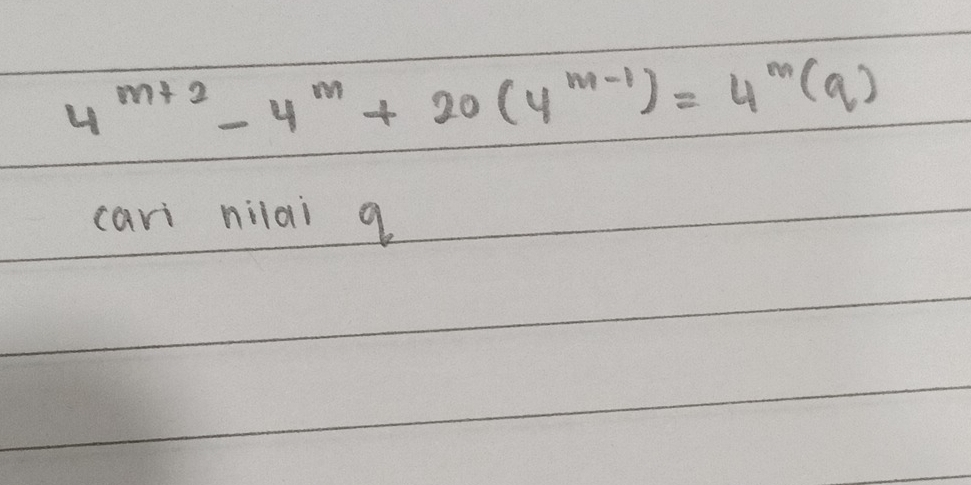 4^{m+2} - 4^m + 20(4^{m-1}) = 4^m(q)
cari nilai q